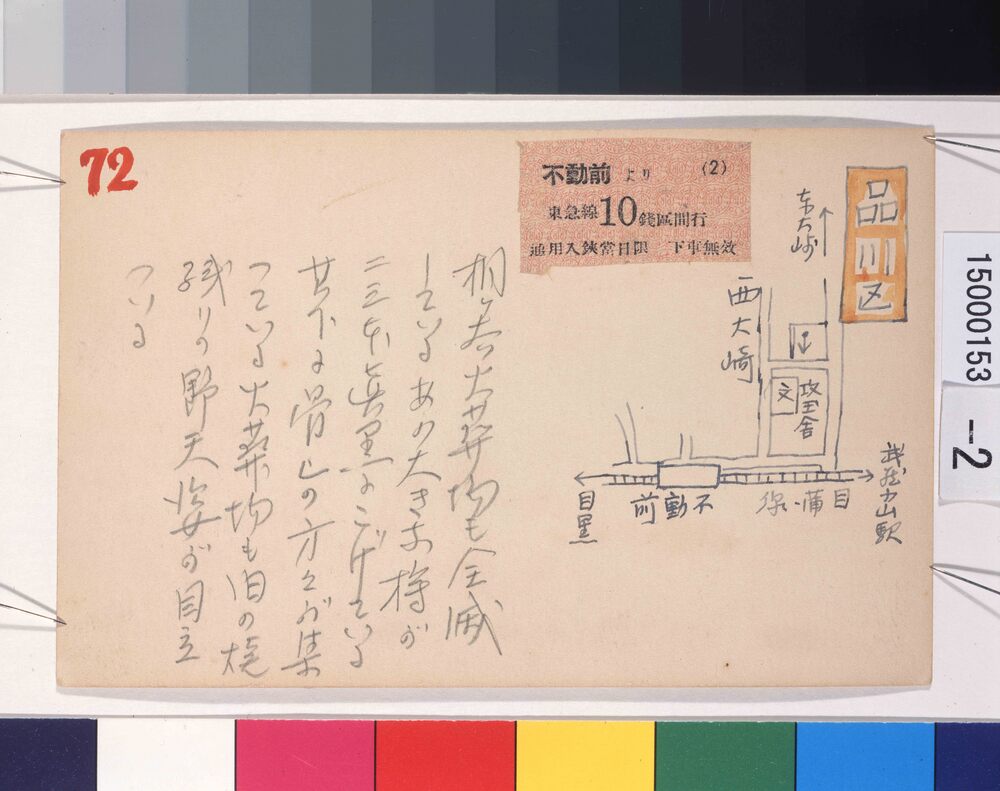 72
不動前より (2)
東急線10銭区間行
通用入鋏当日限 下車無效
品川区
東大崎
西大崎
文
攻玉舎
不動前
目蒲線
目黒
武蔵小山駅
桐ヶ谷火葬場も全滅
している あの大きな樽が
二三本真黒にこげている
其下に骨仏の方々が集
つている 火葬場も旧の焼
残りの野天姿が目立
つている
15000153
-2